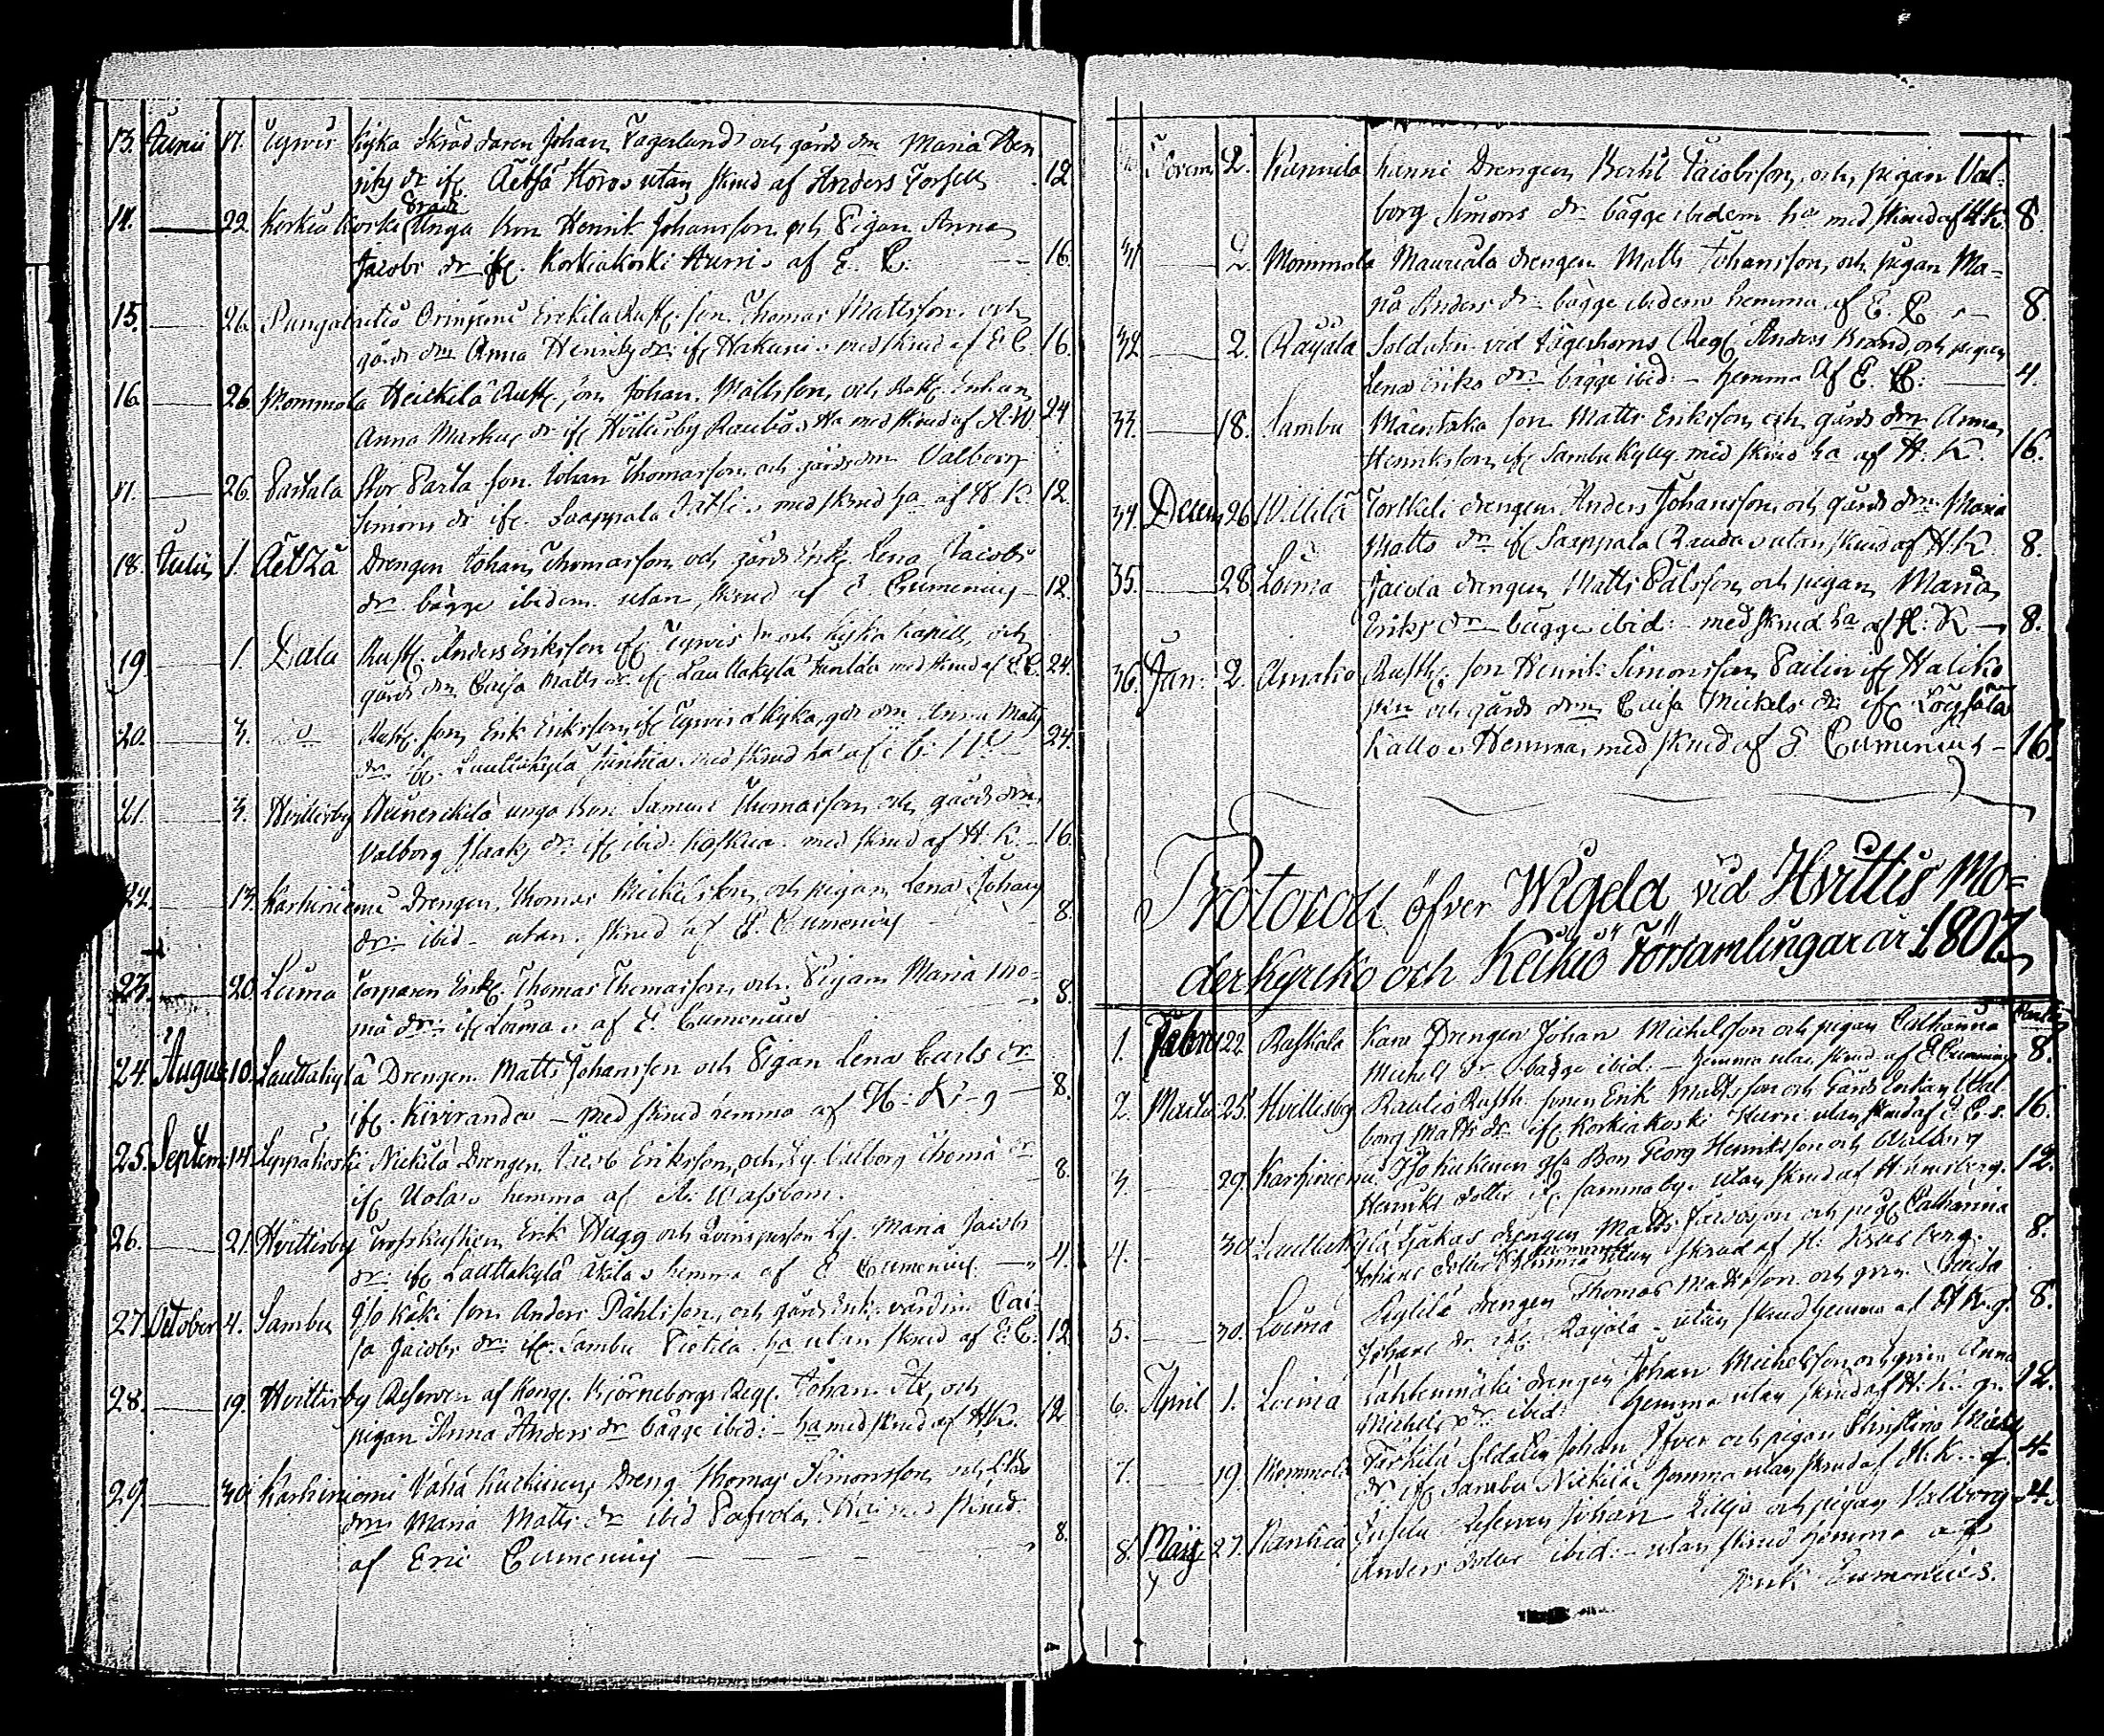 13. Junii 17. Tyrvis Kyka Skräddaren Johan Fagerlund och gårds dn Maria Hen
riks dr if: Äetsä Horo utan skrud af Anders Forsell 12
14. 22. Korkiakoski Unga Bon Henrik Johansson och Pigan Anna
Jacobs dr if: Korkiakoski Hurri af E. C. 16
15. 26. Pungalaitio Erikila Rusth: son Thomas Mattsson och
gårds dn Anna Henriks dr if Hakuni med skrud af E C. 16.
16. 26. Mommola Heickilä Rusth: son Johan Mattsson och Rusth: Enkan
Anna Markus dr if Hvittisby Rautio Ha med skrud af A. W 24
17. 26. Paitala Stor Parta son Johan Thomasson och gårds dn Valborg
Simons dr if: Saappala med skrud ha af H K. 12
18. Julii 1. Äetzä Drengen Johan Thomasson och gårds Enk. Lena Jacobs
dr bägge ibidem utan skrud af E. Cumenius 12.
19. 1. Dala Rusth: Anders Eriksson if Tyrvis och Kyka Kapell och
gårds dn Caisa Matts dr if Lauttakylä med skrud af E C. 24.
20. 3. Rusth: son Erik Eriksson if Tyrvis Kyka, gds dn Anna Matts
dr. if. Lauttakylä med skrud ha af E C. 24.
21. 3. Hvittisby unga Bon Samuel Thomasson och gårds dn
Valborg Isaaks dr if ibid: Koskua med skrud af H. K. 16.
22. 13. Karhiniemi Drengen Thomas Mickelsson och pigan Lena Johans
dr: ibid – utan skrud af E. Cumenius 8.
23. 20. Loima Torparen Enkl: Thomas Thomasson och Pigan Maria Tho-
mä dr: if Loima af E. Cumenius 8.
24. Augus 10. Lauttakylä Drengen Matts Johansson och Pigan Lena Carls dr
if: Kiviranda – med skrud hemma af H: K:– 8.
25. Septem 14. Leppäkoski Nickilä Drengen Jacob Eriksson och Valborg Thomä dr
if Uola hemma af A. Wassbom. 8.
26. 21. Hvittisby Trosskusken Erik Hugg och Qvinsperson Maria Jacobs
dr. if Lauttakylä Äkila hemma af E Cumenius – 4.
27. October 4. Sambu Kaki son Anders Påhlsson och gårds Enk: värdin Cai-
sa Jacobs dr: if. Sambu Pietila ha utan skrud af E: C. 12
28. 19. Hvittisby Reserven af Kongl. Björneborgs Regt. Johan Ax och
pigan Anna Anders dr bägge ibid: – ha med skrud af H K. 12
29. 30. Karhiniemi Vähä Kuckunen Dreng Thomas Simonsson och
dn Maria Matts dr ibid Pafvola skrud
af Eric Cumenius – – – – 8.
Novem 2. Kunnila hanni Drengen Bertil Jacobsson och pigan Val-
borg Simons dr bägge ibidem ha med skrud af H K. 8.
31 2. Mommola Mauriala drengen Matts Johansson och pigan Ma-
ria Anders dr bägge ibidem hemma af E. C. – 8.
32 2. Rayala Soldaten vid Jägerhorns Reg: Anders Brand och pigan
Lena Eriks dr bägge ibid: – hemma af E. C: – 4.
33. 18. Sambu Mäentaka son Matts Eriksson och gårds dn Anna
Henriksson if Sambu Kylly med skrud ha af H. K. 16.
34. Decem 26. Villilä Torkkeli drengen Anders Johansson och gårds dn Maria
Matts dr if Saappala Rauda utan skrud af H: K. 8.
35. 28. Loima Jacola drengen Matts Pålsson och pigan Maria
Eriks dr bägge ibid: – med skrud ha af H: K – 8.
36. Jan: 2. Anako Rusth: son Henrik Simonsson Pailio if Haliko
skn och gårds dn Caisa Mickels dr if
Kallo Hemma, med skrud af E. Cumenius – 16.
Protocoll öfver Wigda vid Hvittis Mo-
derkyrcko och Keikiö Församlingar år 1807.
1. Febru 22. Raskala Karo Drengen Johan Michelsson och pigan Catharina
Michels dr bägge ibid: – hemma utan skrud af E Cumenius 8.
2. Martii 25. Hvittisby Rautio Rusth: sonen Erik Mattsson och Gårds Enkan Val-
borg Matts dr if Korkiakoski Hurri utan skrud af E. C. 16.
3. 29. Karhiniemi Iso Kuckunen Bon Georg Henriksson och Walborg
Henriks dotter if samma by utan skrud af 12.
4. 30. Lauttakylä Äjäkas drengen Matts Jacobsson och pig: Catharina
Johans dotter hemma utan skrud af H: 8.
5. 30. Loima drengen Thomas Mattsson och Caisa
Johans dr. if. Rayala – utan skrud hemma af H K. 8.
6. April 1. Loima drengen Johan Michelsson och Anna
Michels dr. ibid: hemma utan skrud af H. K. 12.
7. 19. Mommola Soldaten Johan Ifver och pigan Christina Michels
dr if Sambu Nickilä hemma utan skrud af H. K. 4.
8. Maij 27. Reserven Johan Lillja och pigan Valborg 4.
Anders dotter ibid: – utan skrud hemma af
Erik Cumenius.